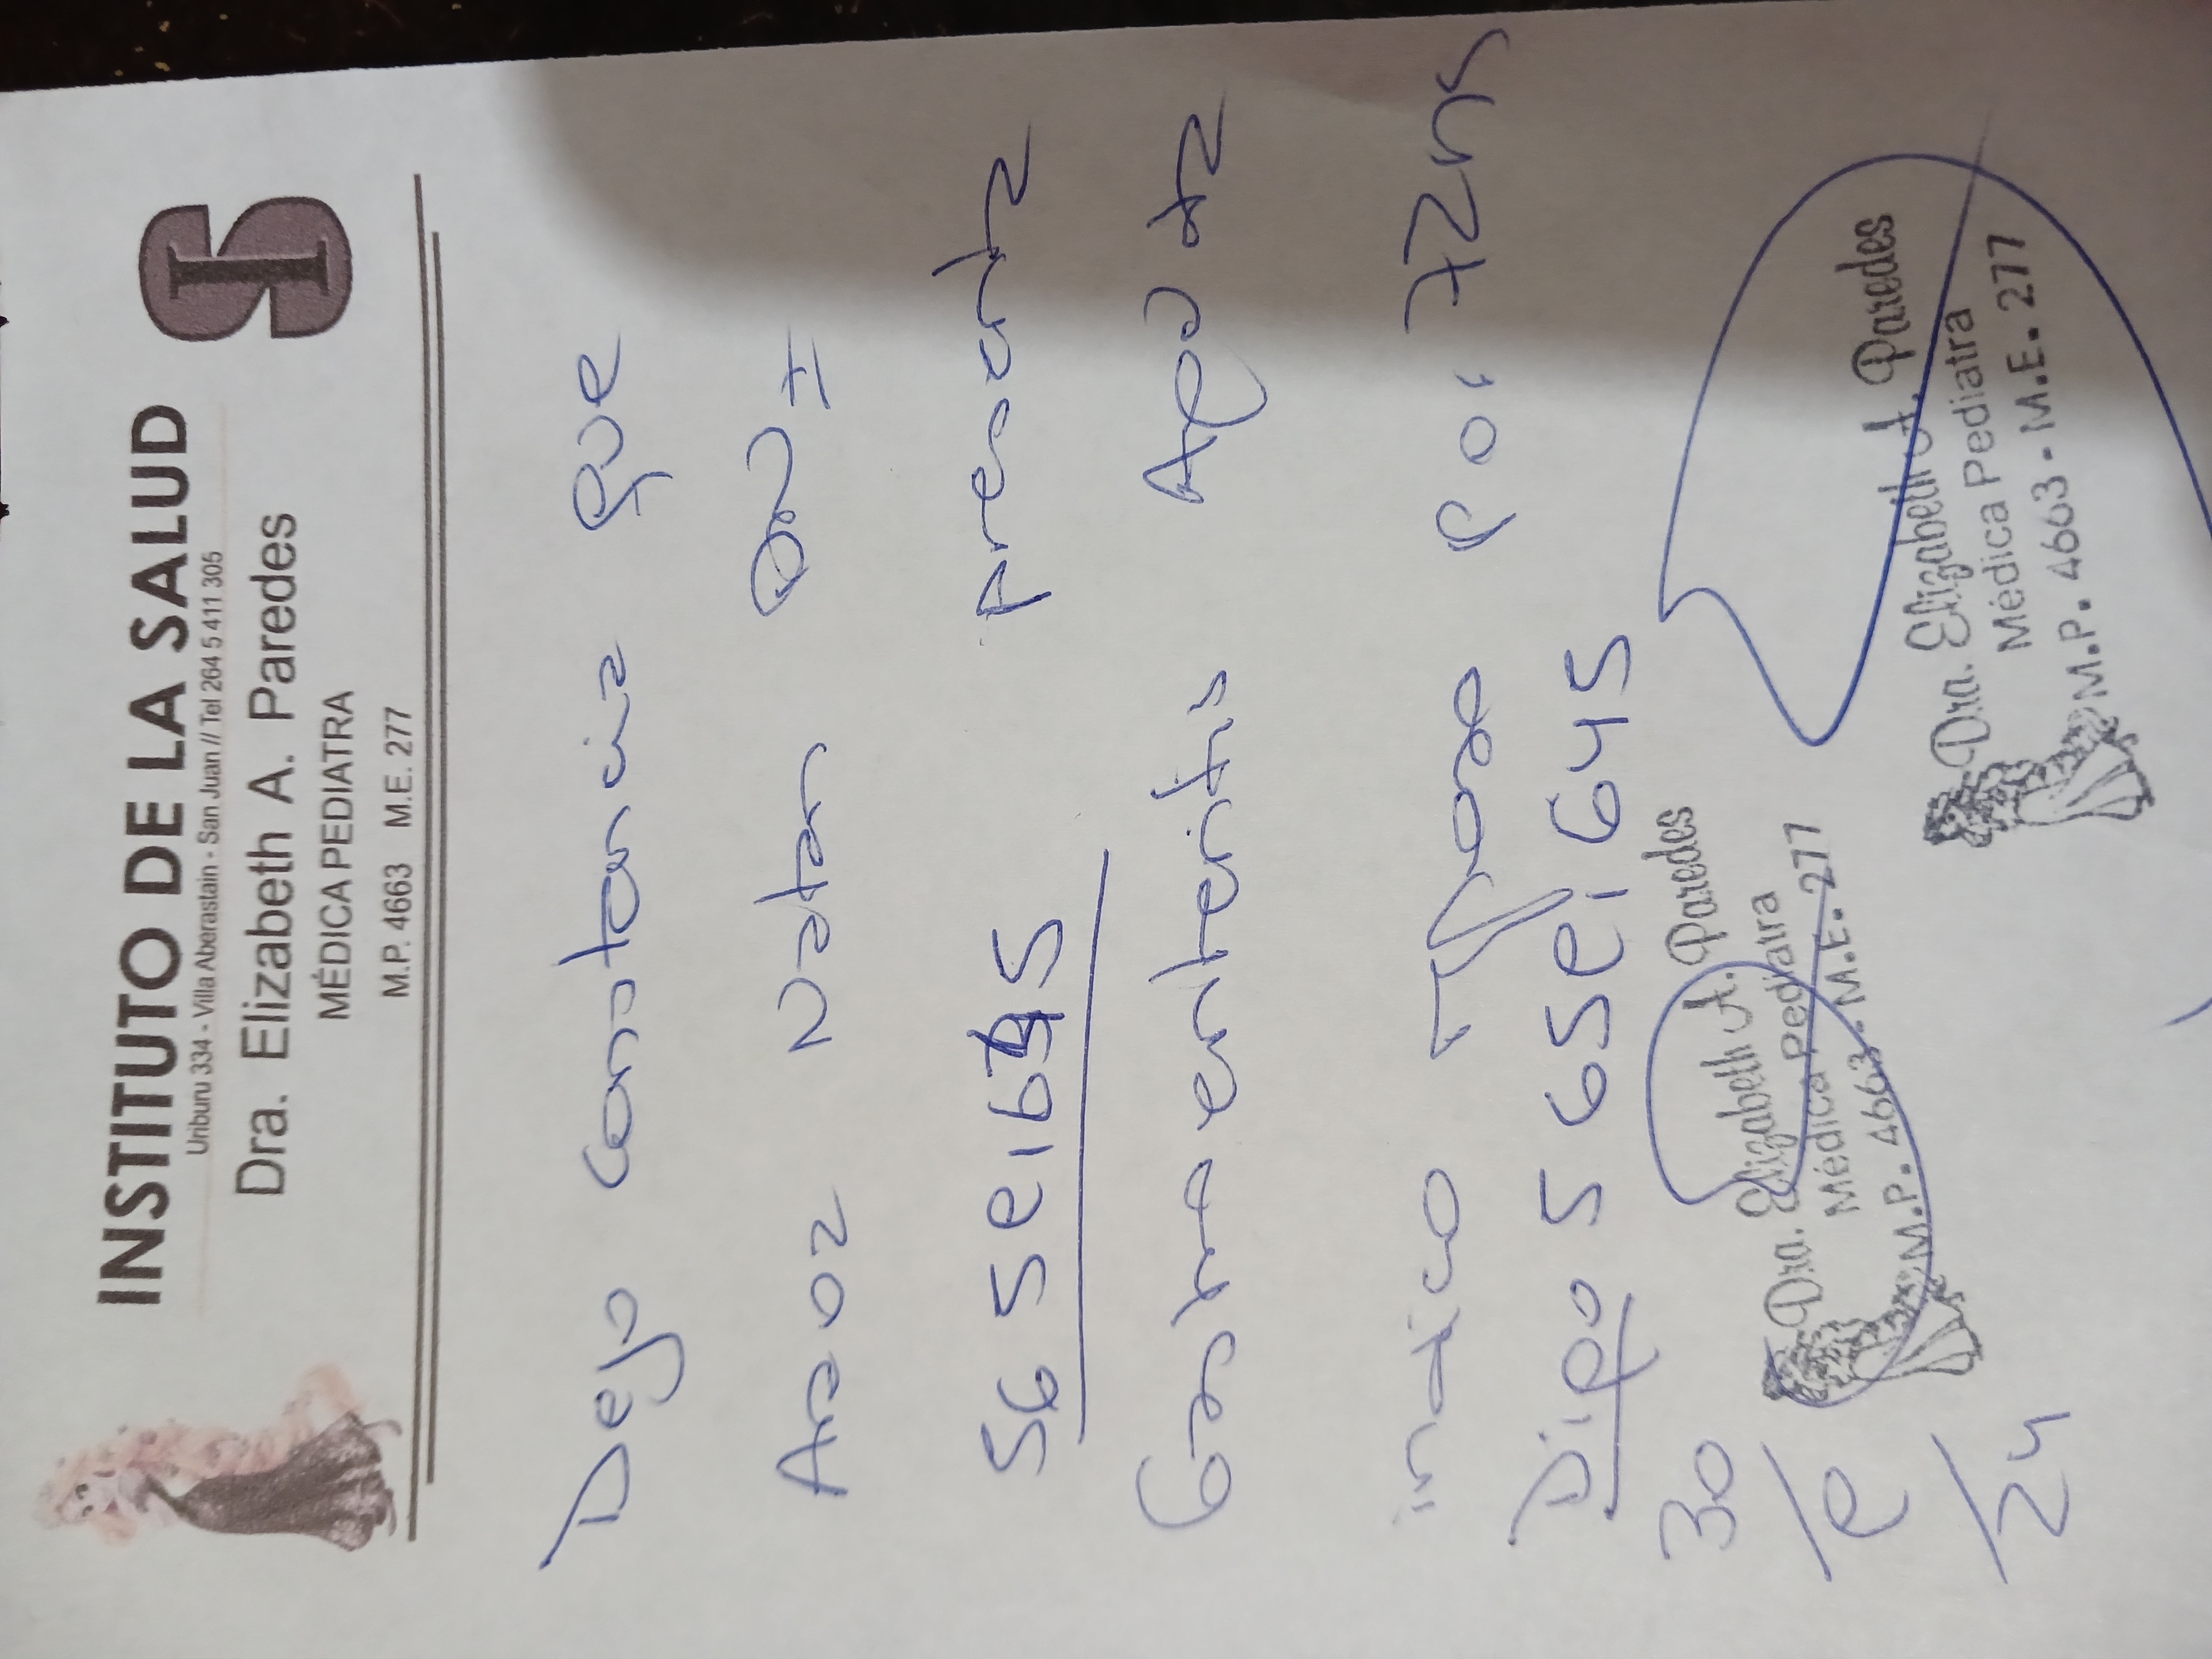 INSTITUTO DE LA SALUD
Uriburu 334 - Villa Aberastain - San Juan // Tel 264 5 411 305
Dra. Elizabeth A. Paredes
MÉDICA PEDIATRA
M.P. 4663 M.E. 277
SI
Dejo constancia que
Araoz Natan DNI
presenta
Gastroenteritis Aguda
indico reposo por 72hs
Digo
30
/24
Dra. Elizabeth A. Paredes
Médica Pediatra
M.P. 4663 - M.E. 277
Dra. Elizabeth A. Paredes
Médica Pediatra
M.P. 4663 - M.E. 277